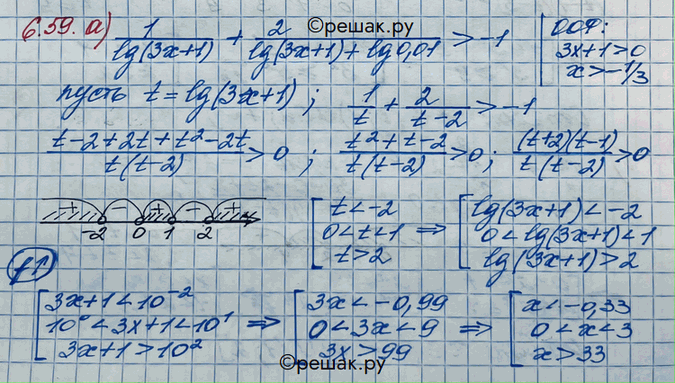 ©решак.ру
6.59. а) 1/lg(3x+1) + 2/(lg(3x+1)+lg0,01) > -1
ООФ:
3x+1>0
x>-1/3
пусть t = lg(3x+1) ; 1/t + 2/(t-2) > -1
(t-2+2t+t²-2t)/(t(t-2)) > 0 ; (t²+t-2)/(t(t-2)) > 0 ; ((t+2)(t-1))/(t(t-2)) > 0
+ - + - +
-2 0 1 2
[ t<-2
0<t<1
t>2
⇒ [ lg(3x+1)<-2
0<lg(3x+1)<1
lg(3x+1)>2
[ 3x+1<10⁻²
10⁰<3x+1<10¹
3x+1>10²
⇒ [ 3x<-0,99
0<3x<9
3x>99
⇒ [ x<-0,33
0<x<3
x>33
©решак.ру